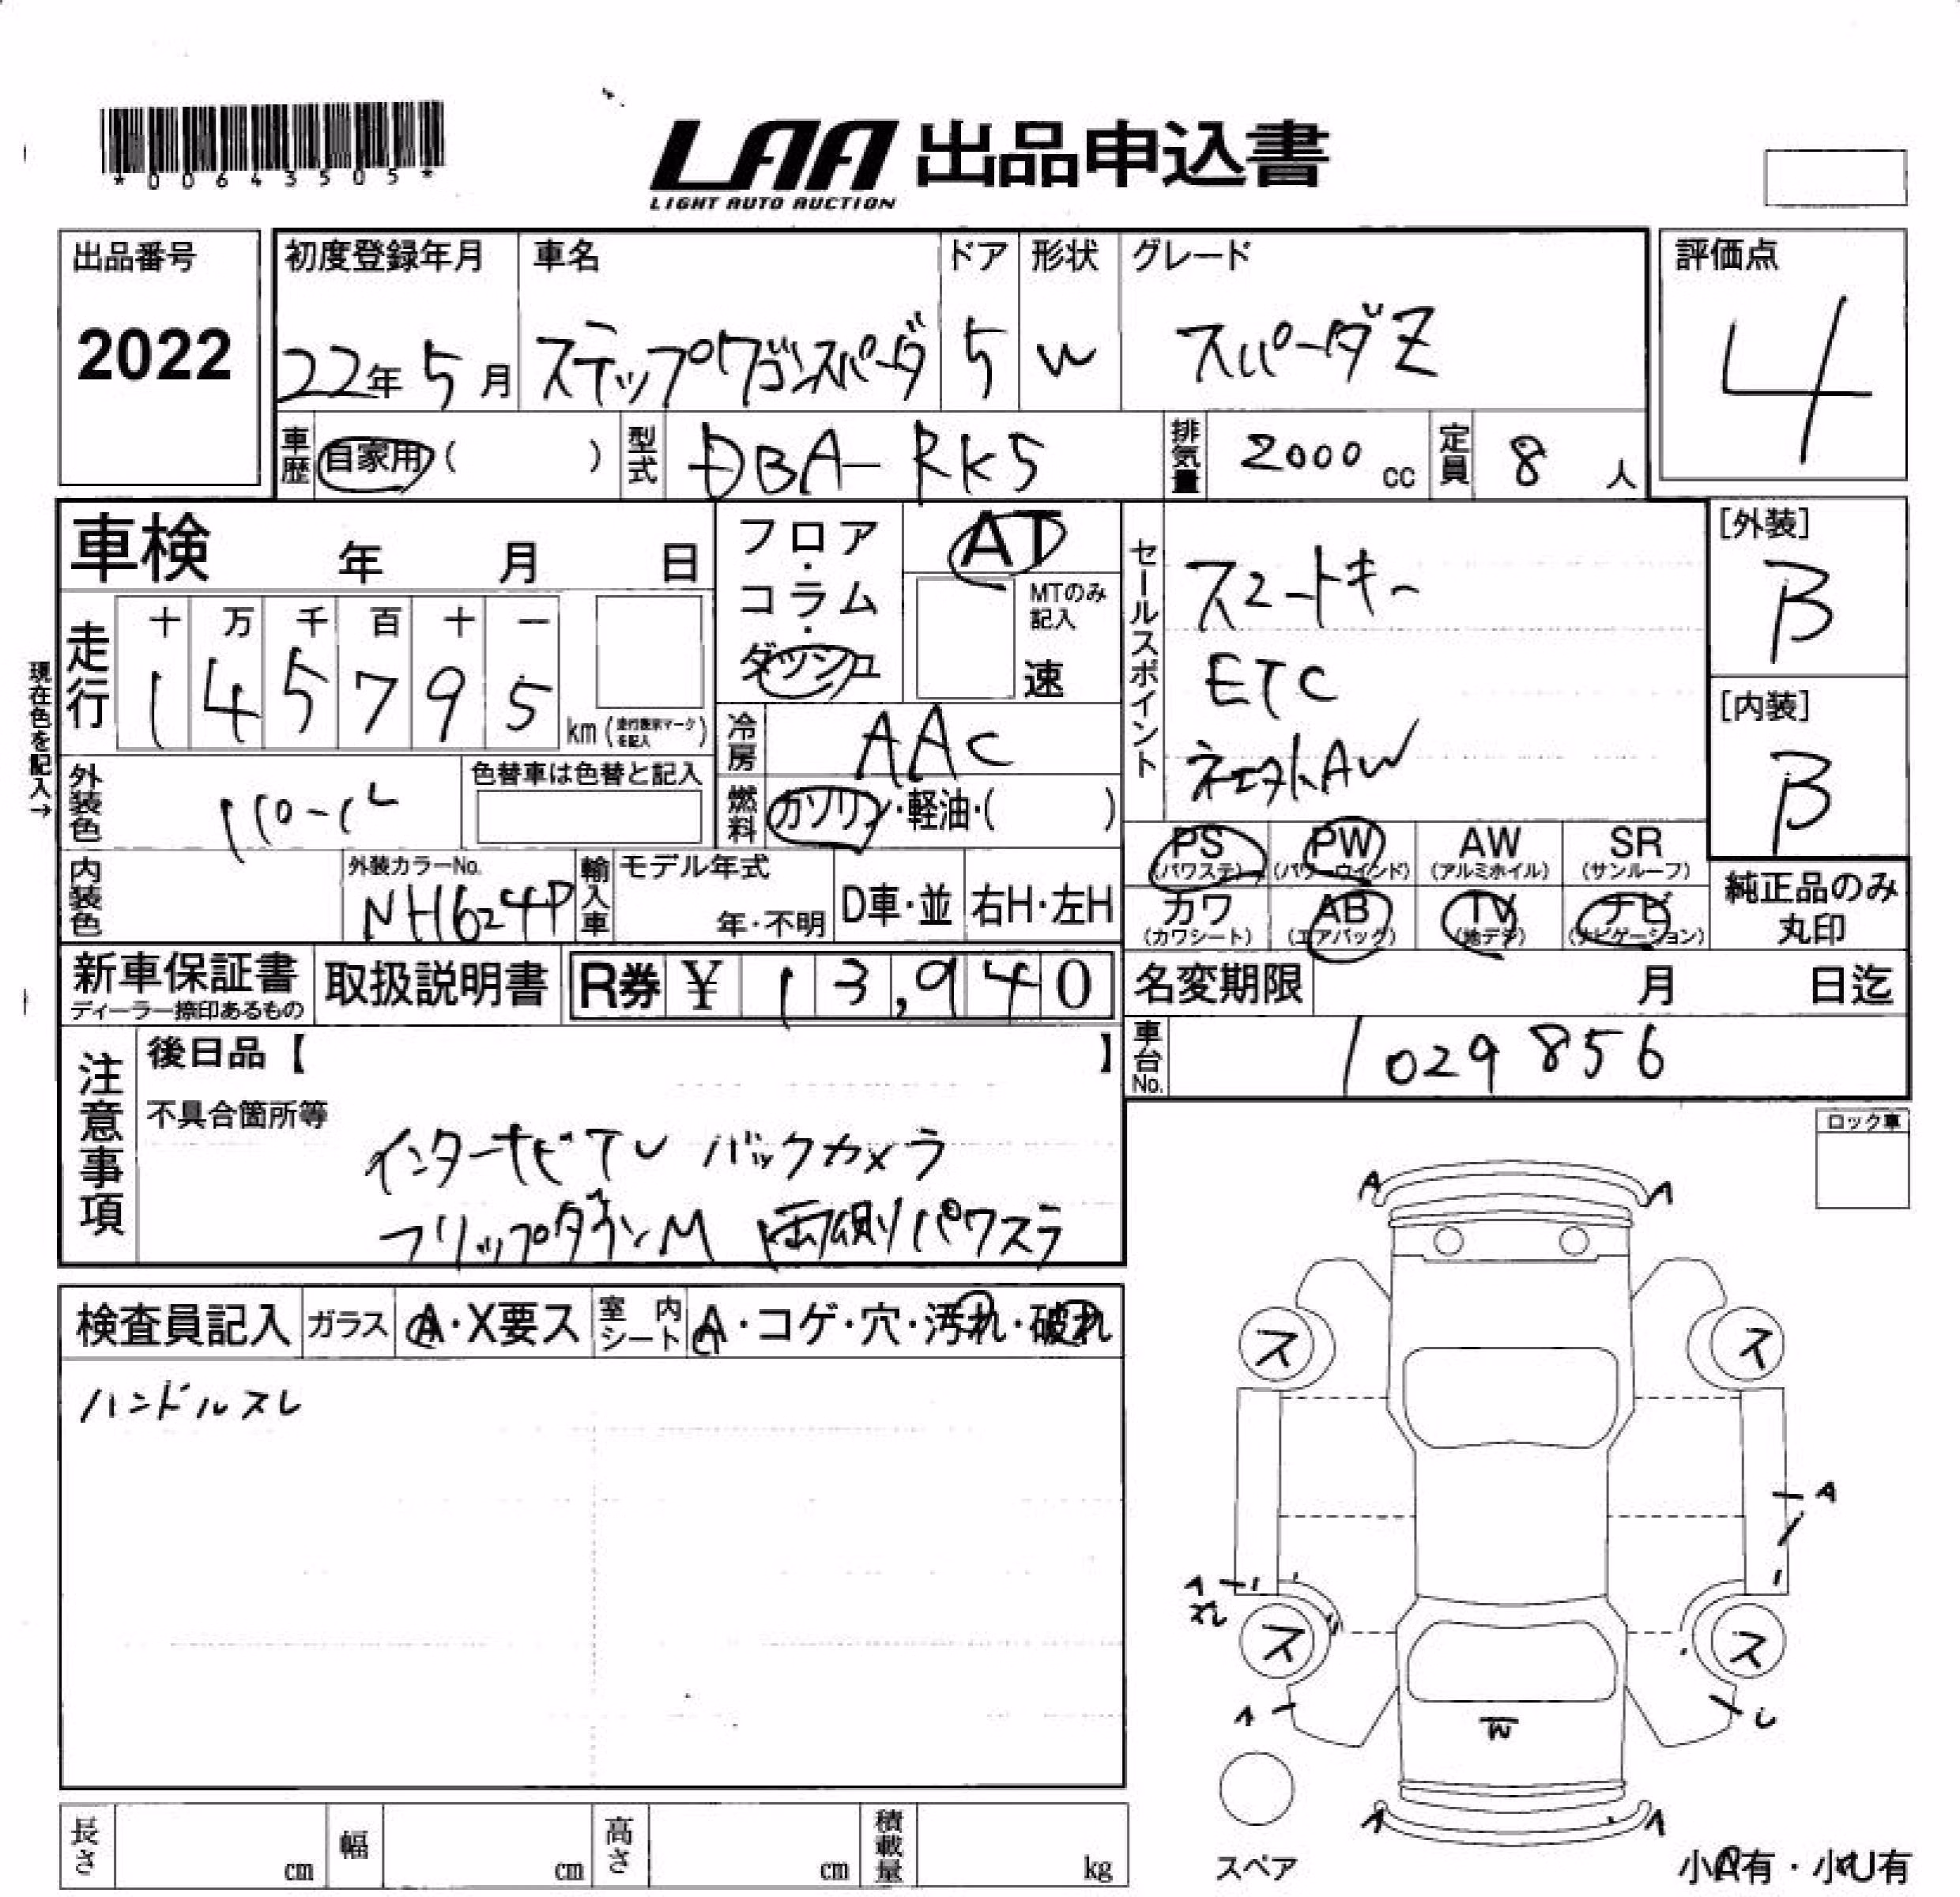 *00643505*
LAA 出品申込書
LIGHT AUTO AUCTION
出品番号
2022
初度登録年月 車名 ドア 形状 グレード
22年 5月 ステップワゴンスパーダ 5 W スパーダZ
評価点
4
車歴 自家用 ( ) 型式 DBA-RK5 排気量 2000 cc 定員 8 人
車検 年 月 日
フロア・コラム・ダッシュ
AT
MTのみ記入
速
現在色を記入→
走行 十 万 千 百 十 一
1 4 5 7 9 5 km (走行表示マークを記入)
冷房 AAC
燃料 ガソリン・軽油・( )
外装色 パール
色替車は色替と記入
内装色
外装カラーNo.
NH624P
輸入車 モデル年式
年・不明 D車・並 右H・左H
セールスポイント
スマートキー
ETC
AW
[外装]
B
[内装]
B
PS (パワステ) PW (パワーウインド) AW (アルミホイル) SR (サンルーフ)
カワ (カワシート) AB (エアバック) TV (地デジ) ナビ (ナビゲーション)
純正品のみ丸印
新車保証書
ディーラー捺印あるもの
取扱説明書
R券 ¥ 13,940
名変期限 月 日迄
車台No. 1029856
注意事項
後日品【 】
不具合箇所等
インターナビTV バックカメラ
フリップダウンM 両側パワスラ
ロック車
検査員記入 ガラス A・X要ス 室内シート A・コゲ・穴・汚れ・破れ
ハンドルスレ
A A
ス ス
A
A
ス ス
A
W
A A
スペア
小A有・小U有
長さ cm 幅 cm 高さ cm 積載量 kg